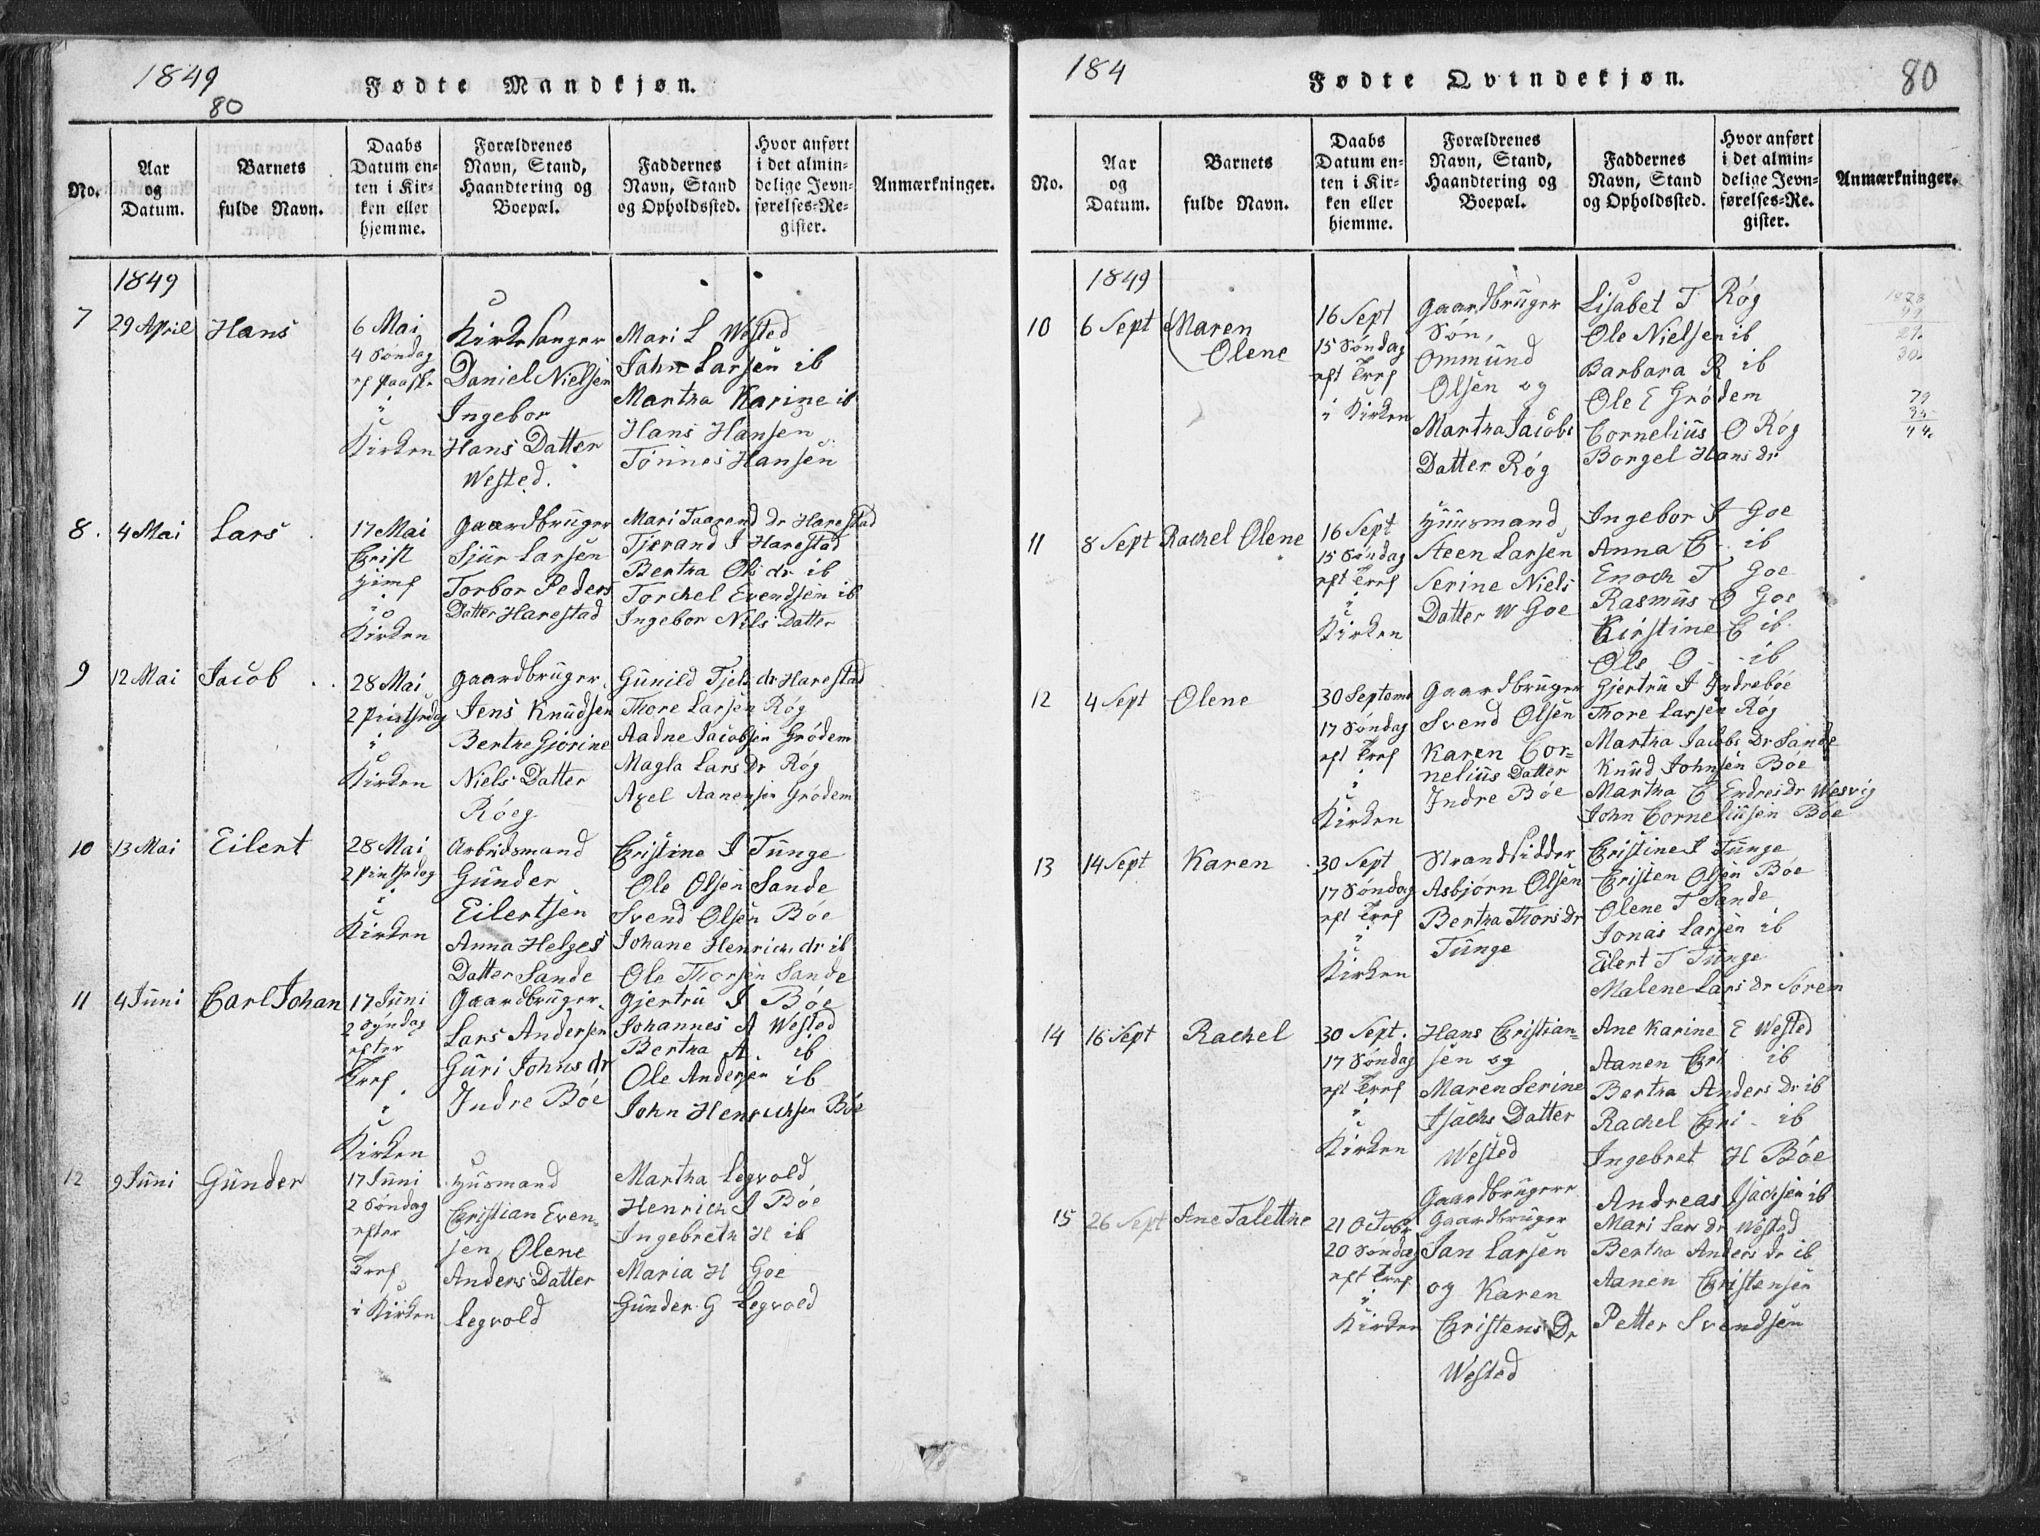 1849
Fødte Mandkjøn.
80
No.
Aar
og
Datum.
Barnets
fulde Navn.
Daabs
Datum en-
ten i Kir-
ken eller
hjemme.
Forældrenes
Navn, Stand,
Haandtering og
Boepæl.
Faddernes
Navn, Stand
og Opholdssted.
Hvor anført
i det almin-
delige Jevn-
førelses-Re-
gister.
Anmærkninger.
1849
7
29 April
Hans
6 Mai
4 Søndag
Kirken
Kirkesanger
Daniel Nielsen
Ingebor
Hans Datter
Wested.
Mari L Wested
Jahn Larsen ib
Martha Karine ib
Hans Hansen
Tønnes Hansen
8.
4 Mai
Lars
17 Mai
Crist
Himf
i
Kirken
Gaardbruger
Sjur Larsen
Torbor Peders
Datter Harestad
Mari Taarend Dr Harestad
Tjerand I Harestad
Bertha Ols dr ib
Torchel Evendsen ib
Ingebor Nils Datter
9
12 Mai
Jacob
28 Mai
2 Pintsedag
i
Kirken
Gaardbruger
Jens Knudsen
Berthe Gjørine
Niels Datter
Røeg
Gunild Tjels dr Harestad
Thore Larsen Røg
Aadne Jacobsen Grødem
Magla Lars Dr Røg
Axel Aanensen Grødem
10
13 Mai
Eilert
28 Mai
2 Pintsedag
i
Kirken
Arbeidsmand
Gunder
Eilertsen
Anna Helges
Datter Sande
Christine I Tunge
Ole Olsen Sande
Svend Olsen Bøe
Johane Henrichs dr ib
Ole Thorsen Sande
11
4 Juni
Carl Johan
17 Juni
2 Søndag
efter
Tref
i
Kirken
Gaardbruger
Lars Andersen
Guri Johns dr
Indre Bøe
Gjertru I Bøe
Johannes A Wested
Bertha A. ib
Ole Andersen ib
John Henrichsen Bøe
12
9 Juni
Gunder
17 Juni
2 Søndag
efter
Tref
i Kirken
Husmand
Christian Even-
sen, Olene
Anders Datter
Legvold
Martha Legvold
Henrich I Bøe
Ingebreth H ib
Maria H Goe
Gunder G Legvold
184
Fødte Qvindekjøn.
80
No.
Aar
og
Datum.
Barnets
fulde Navn.
Daabs
Datum en-
ten i Kir-
ken eller
hjemme.
Forældrenes
Navn, Stand,
Haandtering og
Boepæl.
Faddernes
Navn, Stand
og Opholdssted.
Hvor anført
i det almin-
delige Jevn-
førelses-Re-
gister.
Anmærkninger.
1849
10
6 Sept
Maren
Olene
16 Sept
15 Søndag
eft Tref
i Kirken
Gaardbruger
Søn,
Ommund
Olsen og
Martha Jacobs
Datter Røg
Lisabet T Røg
Ole Nielsen ib
Barbara R ib
Ole E Grødem
Cornelius O Røg
Borgel Hans dr
11
8 Sept
Rachel Olene
16 Sept
15 Søndag
eft Tref
i
Kirken
Huusmand
Steen Larsen
Serine Niels
Datter W Goe
Ingebor I Goe
Anna C. ib
Enoch T Goe
Rasmus O Goe
Kirstine C ib
Ole O - ib
12
4 Sept
Olene
30 Septemr
17 Søndag
eft Tref
i
Kirken
Gaardbruger
Svend Olsen
Karen Cor-
nelius Datter
Indre Bøe
Gjertru I Indrebøe
Thore Larsen Røg
Martha Jacobs Dr Sande
Knud Johnsen Bøe
Martha C Endres Dr Wesvig
John Corneliusen Bøe
13
14 Sept
Karen
30 Sept
17 Søndag
eft Tref
i
Kirken
Strandsidder
Asbjørn Olsen
Bertha Thors dr
Tunge
Christine I Tunge
Christen Olsen Bøe
Olene T Sande
Jonas Larsen ib
Eilert T Tunge
Malene Lars dr Sørem
14
16 Sept
Rachel
30 Sept.
17 Søndag
eft Tref
i
Kirken
Hans Christian-
sen og
Maren Serine
Isachs Datter
Wested
Gaardbrugere
Ane Karine E Wested
Aanen Chri ib
Bertha Anders Dr ib
Rachel Chri - ib
Ingebret H Bøe
Andreas Isachsen ib
15
26 Sept
Ane Talettine
21 Octobr
20 Søndag
eft Tref
i
Kirken
Gaardbruger
Jan Larsen
og Karen
Christens Dr
Wested
Mari Lars dr Wested
Bertha Anders dr ib
Aanen Christensen
Petter Svendsen